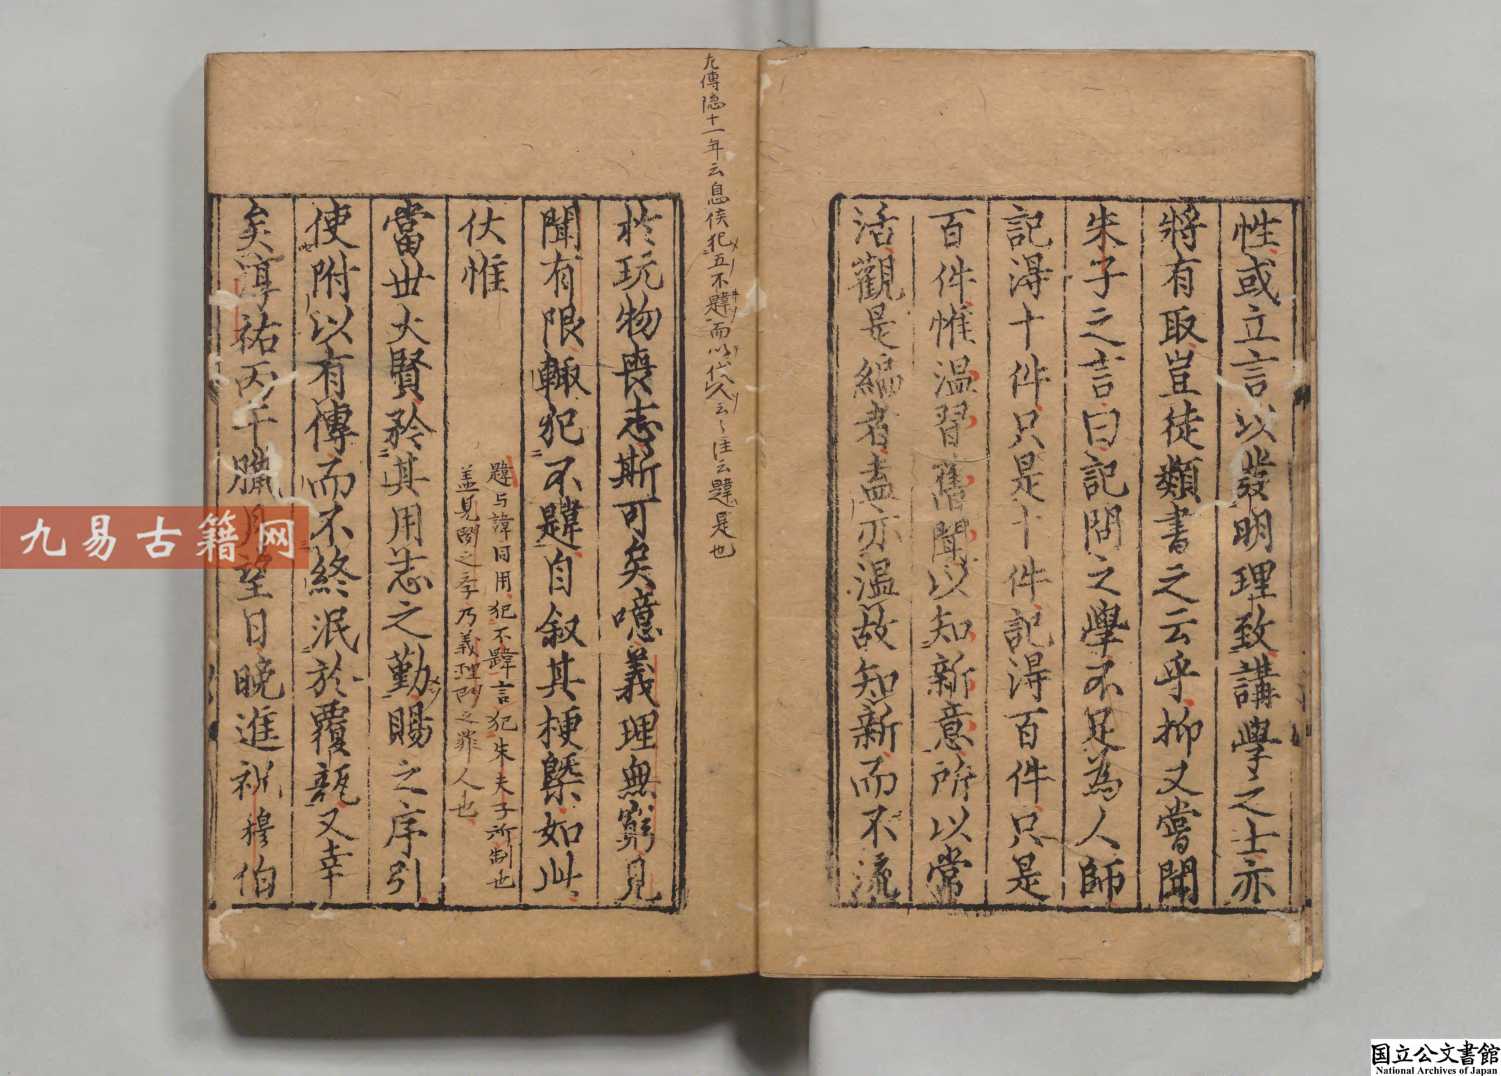 性或立言以發明理致講學之士亦
將有取豈徒類書之云乎抑又嘗聞
朱子之言曰記問之學不足為人師
記得十件只是十件記得百件只是
百件惟温習舊聞以知新意所以常
活觀是編者盍亦温故知新而不流
左傳隐十一年云息侯犯五不韙而以伐人云々注云韙是也
於玩物喪志斯可矣噫義理無窮見
聞有限輙犯不韙自叙其梗槩如此
韙与諱同用犯不韙言犯朱夫子所制也
盖見聞之学乃義理門之罪人也
伏惟
當世大賢矜其用志之勤賜之序引
使附以有傳而不終泯於覆瓿又幸
矣淳祐丙午臘月望日晚進祝穆伯
九易古籍网
国立公文書館
National Archives of Japan